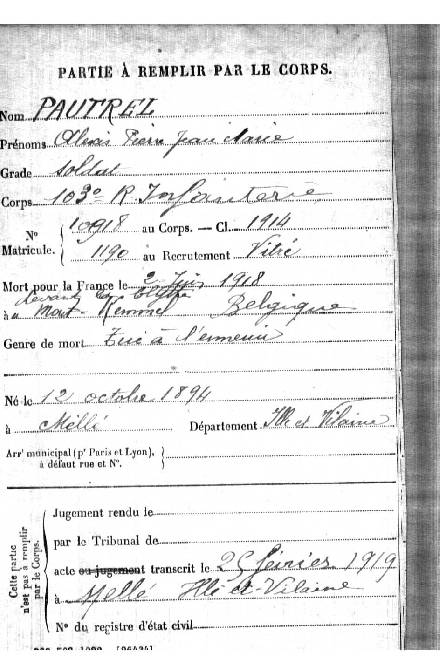 PARTIE À REMPLIR PAR LE CORPS.
Nom PAUTREL
Prénoms Alexis Pierre Jean Marie
Grade Soldat
Corps 103e R. Infanterie
N° Matricule. { 10918 au Corps. — Cl. 1914
1190 au Recrutement Vitré
Mort pour la France le 2 Juin 1918
devant
à au Mont Kemmel Belgique
Genre de mort Tué à l'ennemi
Né le 12 octobre 1894
à Mellé Département Ille et Vilaine
Arrt municipal (pr Paris et Lyon), }
à défaut rue et N°.
Cette partie n'est pas à remplir par le Corps.
Jugement rendu le
par le Tribunal de
acte ou jugement transcrit le 25 février 1919
à Mellé Ille-et-Vilaine
N° du registre d'état civil